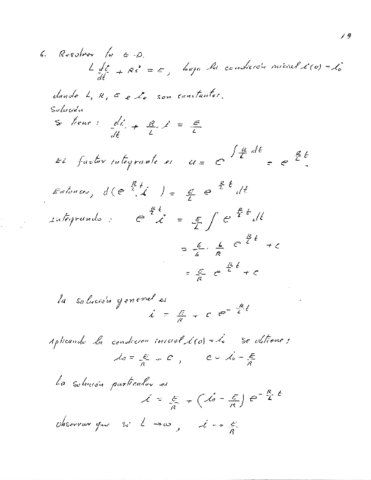 19
6. Resolver la E.D.
L di/dt + Ri = E, bajo la condición inicial i(0) = i₀
donde L, R, E e i₀ son constantes.
Solución
Se tiene: di/dt + R/L i = E/L
El factor integrante es u = e^{∫ R/L dt} = e^{R/L t}.
Entonces, d(e^{R/L t}.i) = E/L e^{R/L t} dt
Integrando: e^{R/L t} i = E/L ∫ e^{R/L t} dt
= E/L . L/R e^{R/L t} + c
= E/R e^{R/L t} + c
La solución general es
i = E/R + c e^{-R/L t}
Aplicando la condición inicial i(0) = i₀ se obtiene:
i₀ = E/R + c, c = i₀ - E/R
La solución particular es
i = E/R + (i₀ - E/R) e^{-R/L t}
observar que si t → ∞, i → E/R